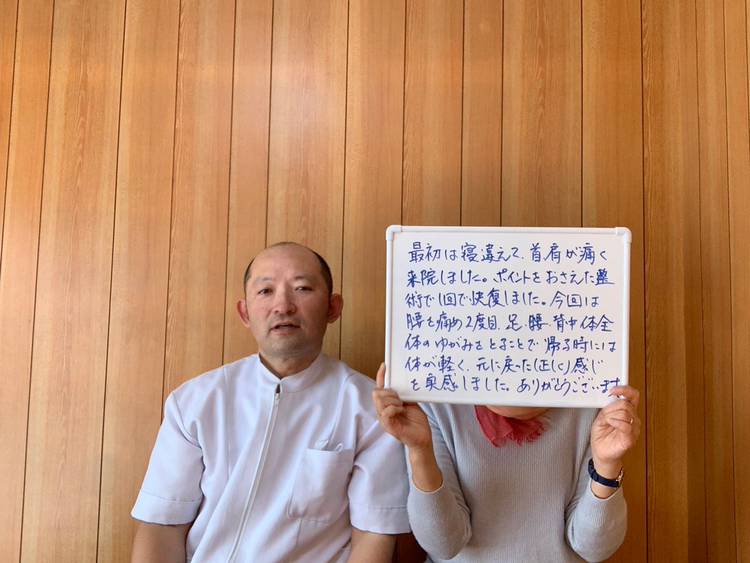 最初は寝違えて、首肩が痛く
来院しました。ポイントをおさえた整
術で1回で快復しました。今回は
腰を痛め2度目、足、腰、背中、体全
体のゆがみをとることで帰る時には
体が軽く、元に戻った(正しく)感じ
を実感しました。ありがとうございます